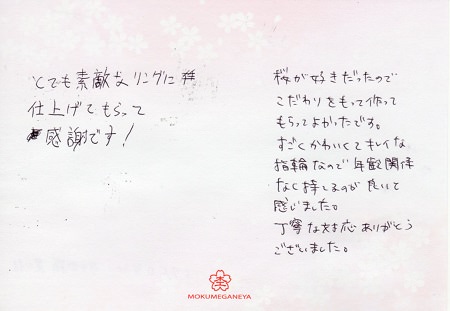 とても素敵なリングに
仕上げてもらって
感謝です!
桜が好きだったので
こだわりをもって作って
もらってよかったです。
すごくかわいくてキレイな
指輪なので年齢関係
なく持てるのが良いと
感じました。
丁寧な対応ありがとう
ございました。
MOKUMEGANEYA